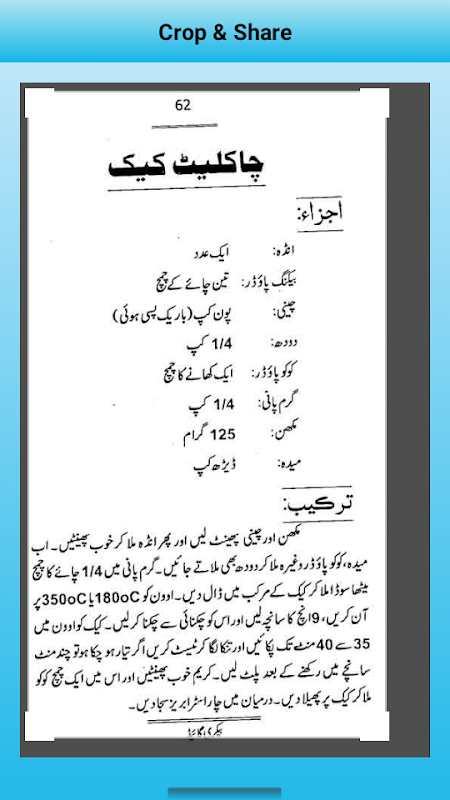 Crop & Share
62
چاکلیٹ کیک
اجزاء:
انڈہ: ایک عدد
بیکنگ پاؤڈر: تین چائے کے چمچ
چینی: پون کپ (باریک پسی ہوئی)
دودھ: 1/4 کپ
کوکو پاؤڈر: ایک کھانے کا چمچ
گرم پانی: 1/4 کپ
مکھن: 125 گرام
میدہ: ڈیڑھ کپ
ترکیب:
مکھن اور چینی پھینٹ لیں اور پھر انڈہ ملا کر خوب پھینٹیں۔ اب
میدہ، کوکو پاؤڈر وغیرہ ملا کر دودھ بھی ملاتے جائیں۔ گرم پانی میں 1/4 چائے کا چمچ
میٹھا سوڈا ملا کر کیک کے مرکب میں ڈال دیں۔ اوون کو 180oC یا 350oC پر
آن کریں، 9 انچ کا سانچہ لیں اور اس کو چکنائی سے چکنا کر لیں۔ کیک کو اوون میں
35 سے 40 منٹ تک پکائیں اور تنکا لگا کر ٹیسٹ کریں اگر تیار ہو چکا ہو تو چند منٹ
سانچے میں رکھنے کے بعد پلٹ لیں۔ کریم خوب پھینٹیں اور اس میں ایک چمچ کوکو
ملا کر کیک پر پھیلا دیں۔ درمیان میں چار اسٹرابریز سجا دیں۔
بیکری گائیڈ